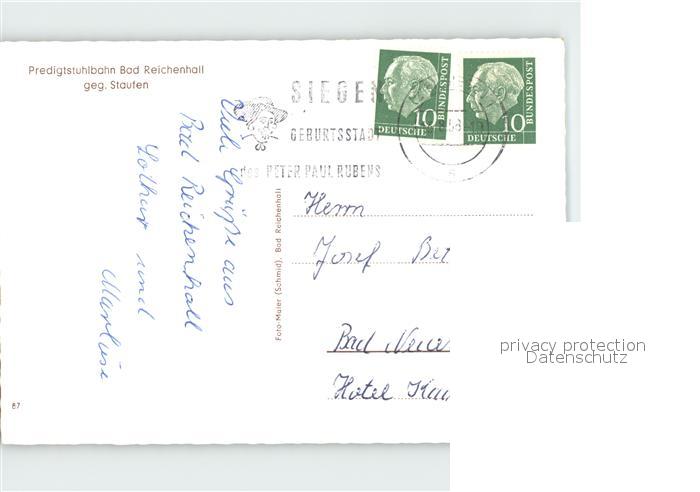 Predigtstuhlbahn Bad Reichenhall
geg. Staufen
SIEGEN
GEBURTSSTADT
des PETER PAUL RUBENS
10
DEUTSCHE
BUNDESPOST
10
DEUTSCHE
BUNDESPOST
Viele Grüße aus
Bad Reichenhall
Lothar und
Marlies
Foto-Maier (Schmid), Bad Reichenhall
Herrn
Josef
Bad
Hotel
87
privacy protection
Datenschutz